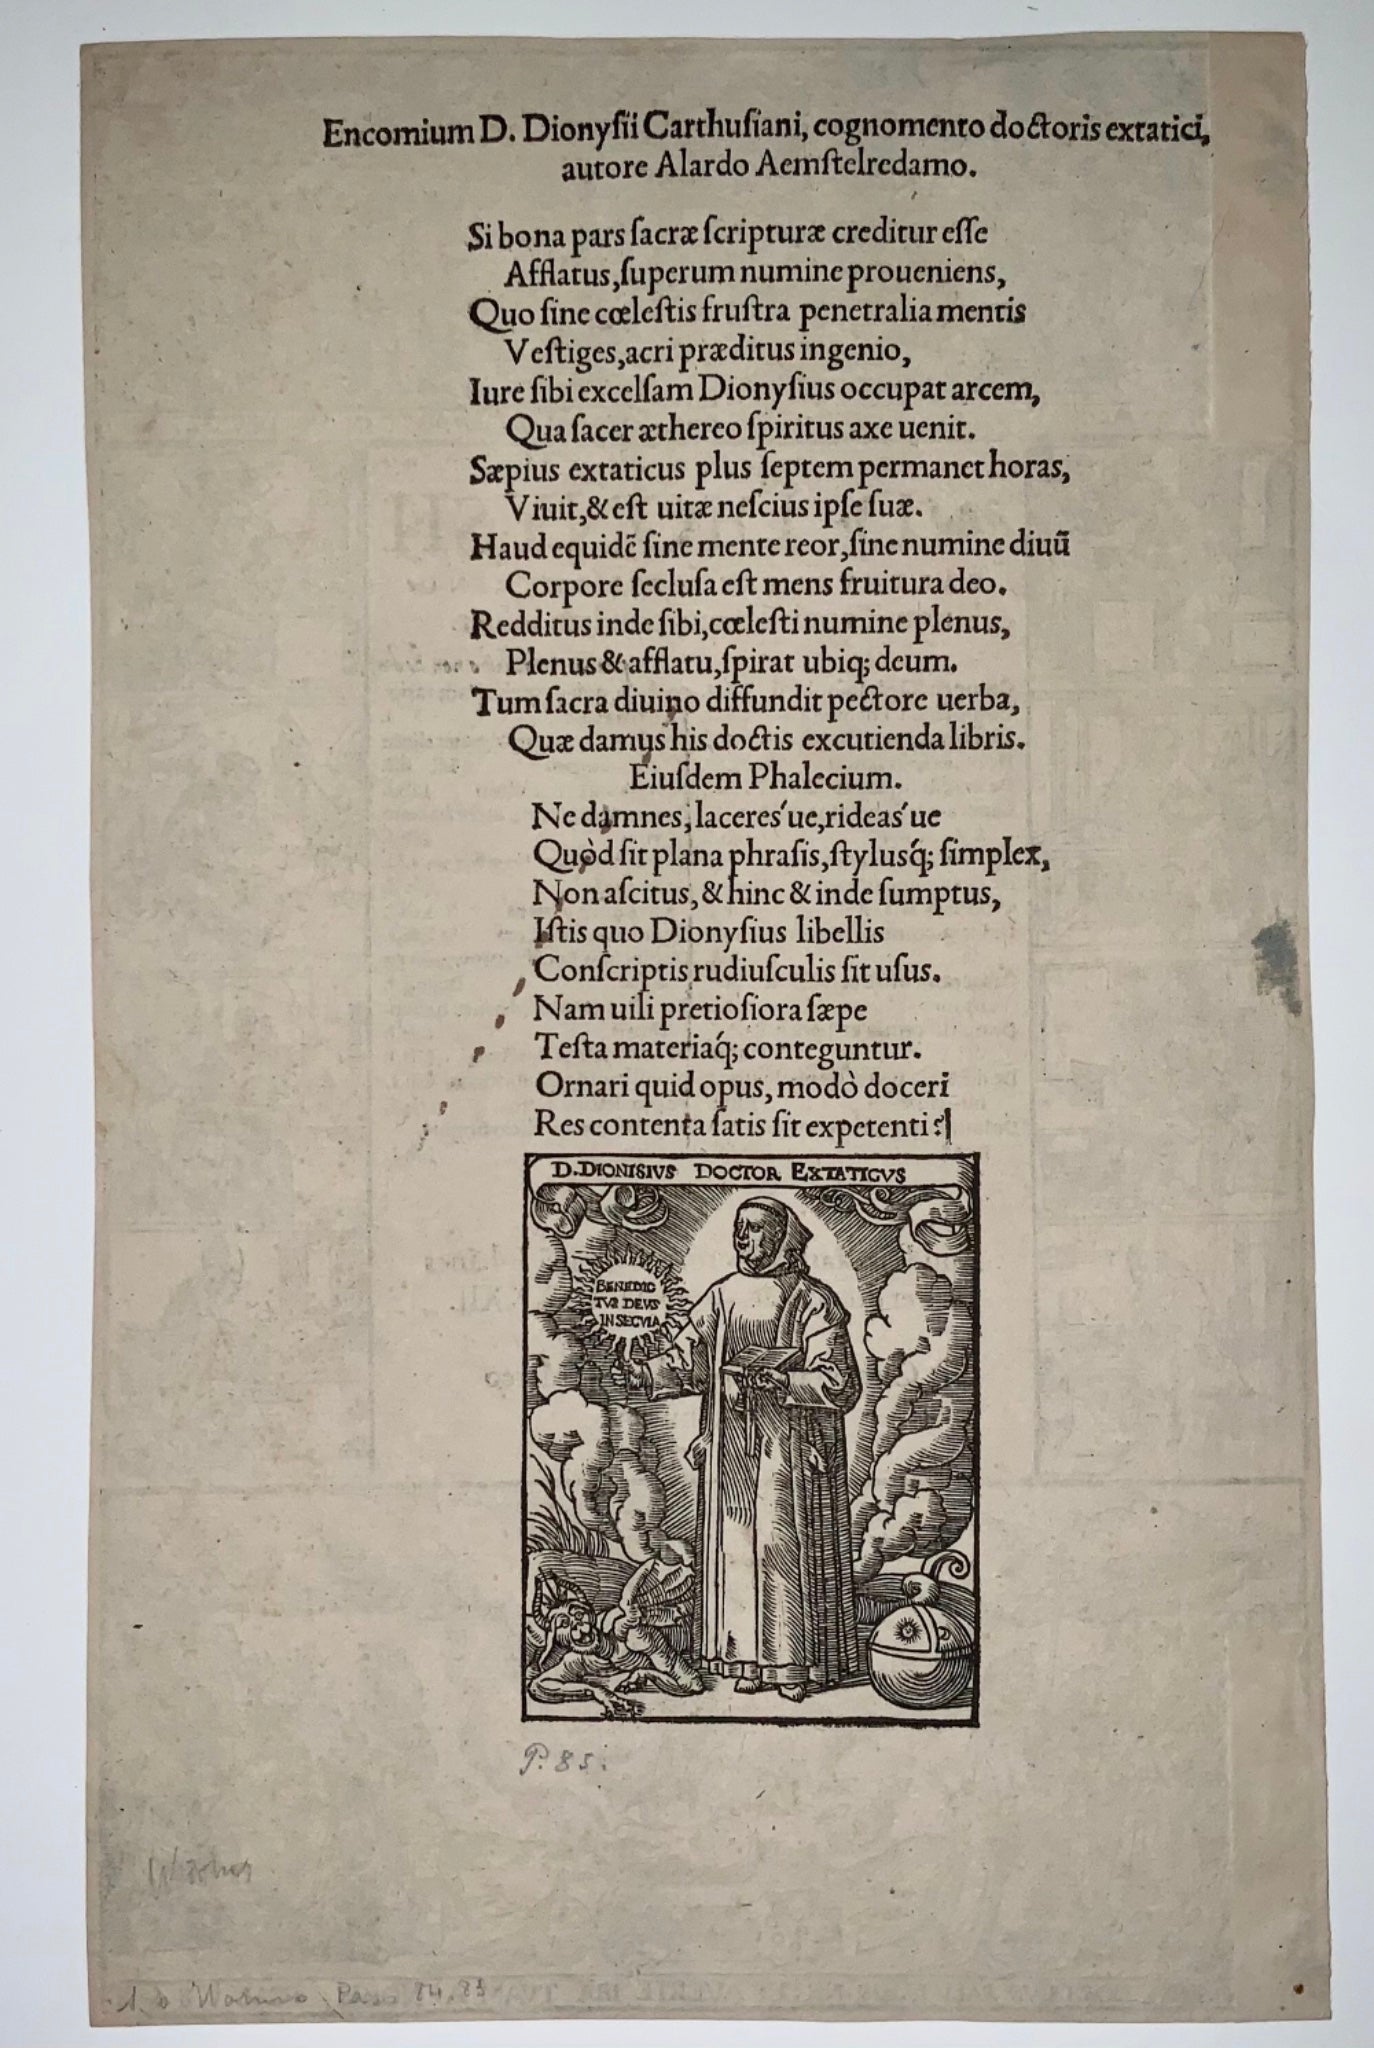 Encomium D. Dionyſii Carthuſiani, cognomento doctoris extatici,
autore Alardo Aemſtelredamo.
Si bona pars ſacræ ſcripturæ creditur eſſe
Afflatus,ſuperum numine proueniens,
Quo ſine cœleſtis fruſtra penetralia mentis
Veſtiges,acri præditus ingenio,
Iure ſibi excelſam Dionyſius occupat arcem,
Qua ſacer æthereo ſpiritus axe uenit.
Sæpius extaticus plus ſeptem permanet horas,
Viuit,& eſt uitæ neſcius ipſe ſuæ.
Haud equidẽ ſine mente reor,ſine numine diuũ
Corpore ſecluſa eſt mens fruitura deo.
Redditus inde ſibi,cœleſti numine plenus,
Plenus & afflatu,ſpirat ubiq; deum.
Tum ſacra diuino diffundit pectore uerba,
Quæ damus his doctis excutienda libris.
Eiuſdem Phalecium.
Ne damnes, laceres´ue,rideas´ue
Quòd ſit plana phraſis,ſtylusq́; ſimplex,
Non aſcitus, & hinc & inde ſumptus,
Iſtis quo Dionyſius libellis
Conſcriptis rudiuſculis ſit uſus.
Nam uili pretioſiora ſæpe
Teſta materiaq́; conteguntur.
Ornari quid opus, modò doceri
Res contenta ſatis ſit expetenti?
D. DIONISIVS DOCTOR EXTATICVS
BENEDIC
TVS DEVS
IN SECVLA
P. 85.
Pass 84.85